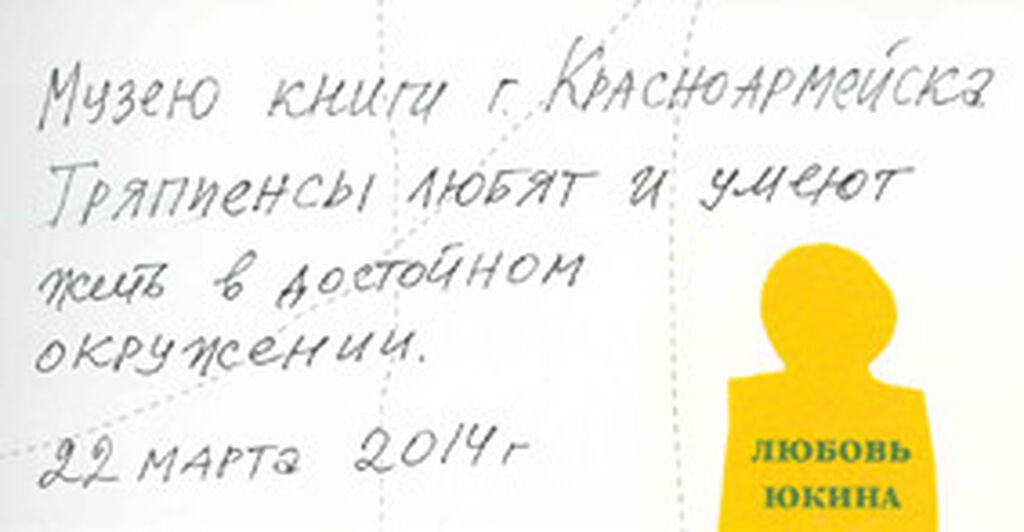 Музею книги г. Красноармейска
Тряпиенсы любят и умеют
жить в достойном
окружении.
22 марта 2014 г
ЛЮБОВЬ
ЮКИНА